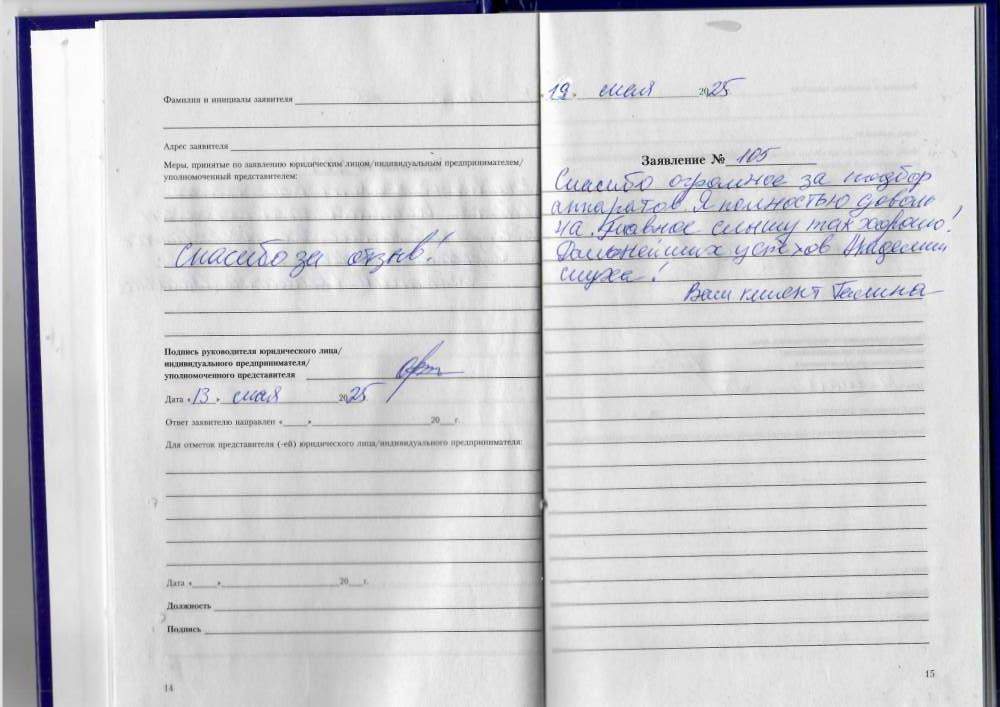 Фамилия и инициалы заявителя
Адрес заявителя
Меры, принятые по заявлению юридическим лицом/индивидуальным предпринимателем/
уполномоченный представителем:
Спасибо за отзыв!
Подпись руководителя юридического лица/
индивидуального предпринимателя/
уполномоченного представителя
Дата «13» мая 2025
Ответ заявителю направлен « » 20 г.
Для отметок представителя (-ей) юридического лица/индивидуального предпринимателя:
Дата « » 20 г.
Должность
Подпись
14
19. мая 2025
Заявление № 105
Спасибо огромное за подбор
аппаратов. Я полностью доволь
на. Главное слышу так хорошо!
Дальнейших успехов Академии
слуха!
Ваш клиент Галина
15